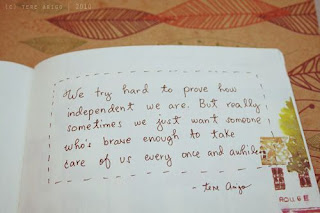 (c) TEME ABIGO | 2010
We try hard to prove how
independent we are. But really
sometimes we just want someone
who's brave enough to take
care of us every once and awhile
- teme